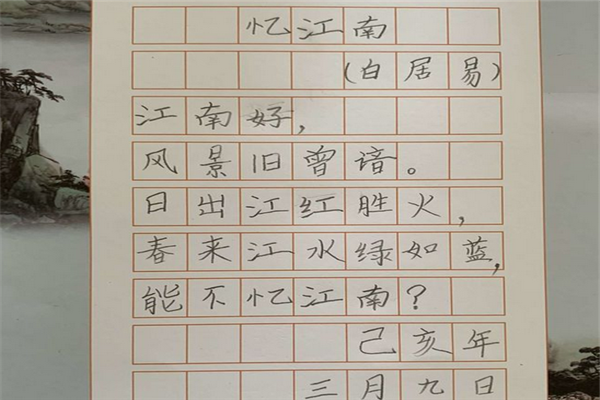 忆江南
(白居易)
江南好，
风景旧曾谙。
日出江红胜火，
春来江水绿如蓝，
能不忆江南？
己亥年
三月九日